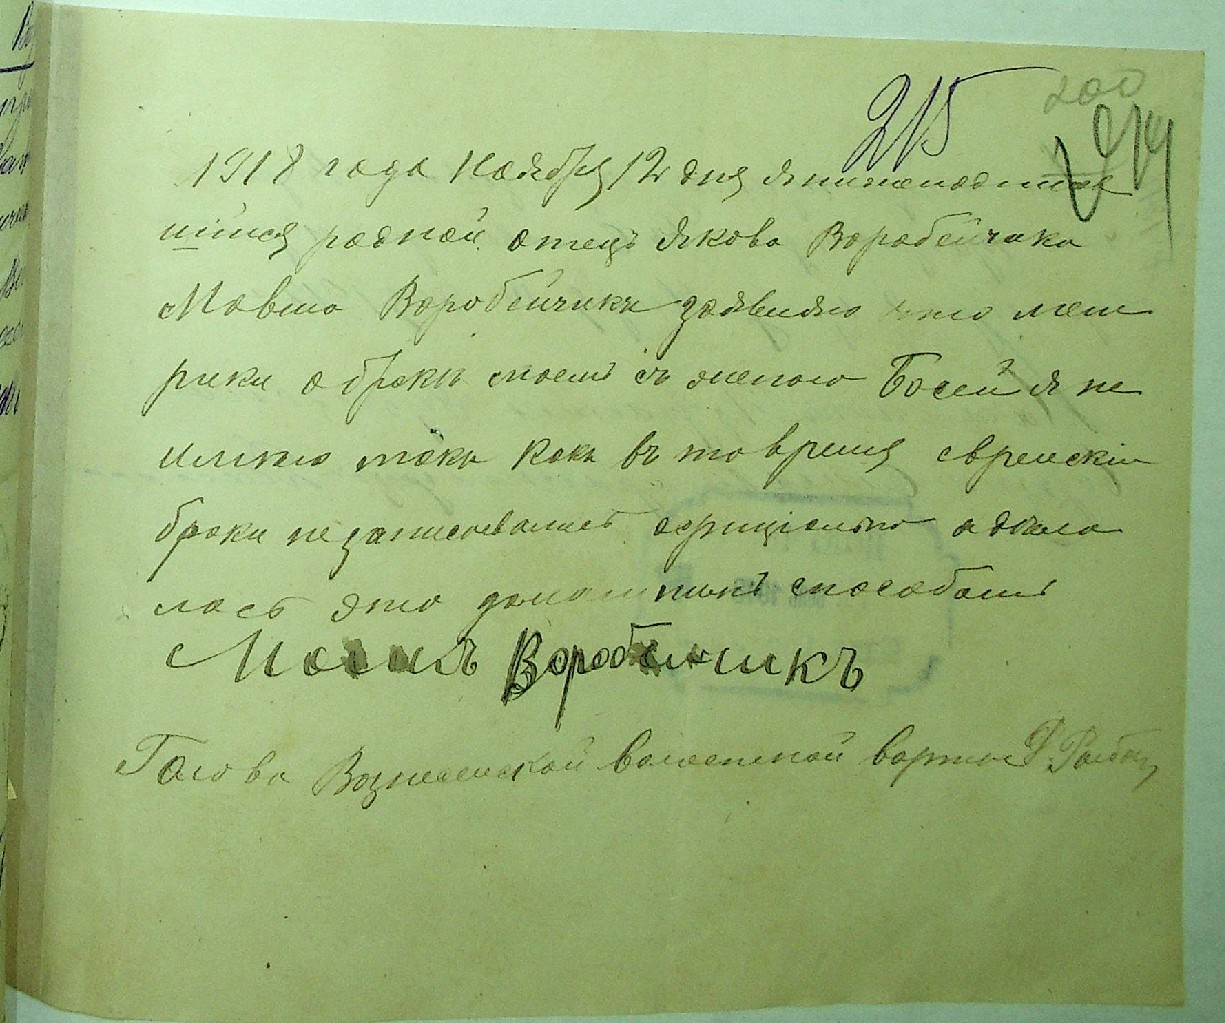 215
200
214
1918 года Ноября 12 дня я нижеподписав
шійся родной отецъ Якова Воробейчика
Мовша Воробейчикъ заявляю что мет
рики о бракѣ моемъ съ женою Босей я не
имѣю такъ какъ въ то время еврейскіи
браки не записовались офиціально а дѣла
лось это домашнимъ способомъ
Воробейчикъ
Голова Вознесенской волостной варты